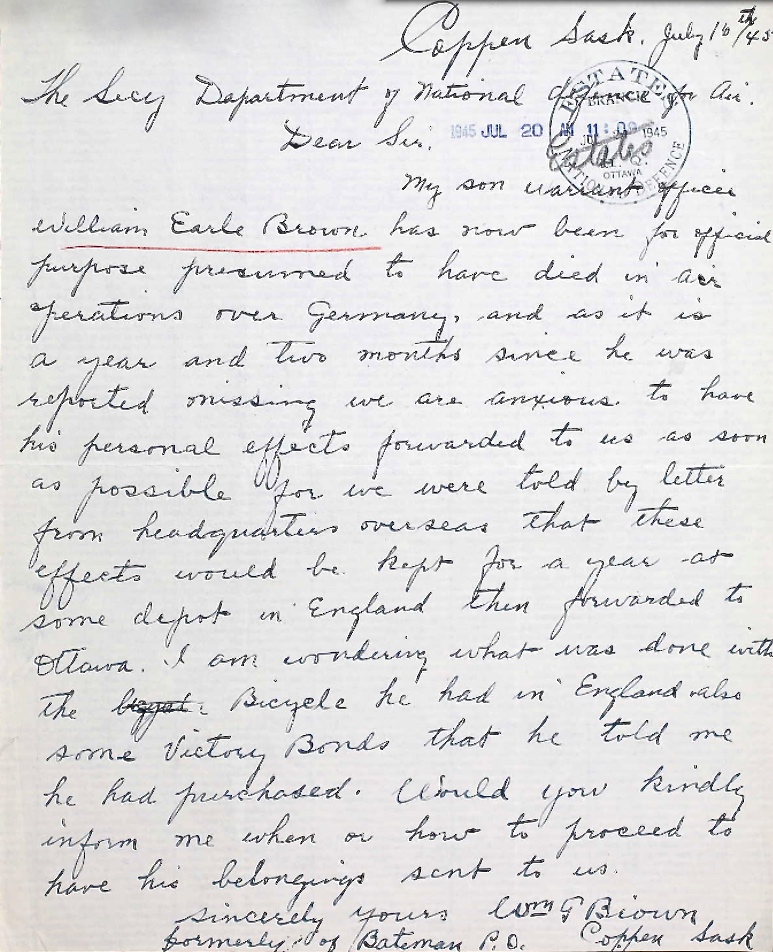 Coppen Sask. July 16th/45
The Secy Department of National defence for Air.
Dear Sir.
1945 JUL 20 AM 11:09
ESTATES
BRANCH
1945
OTTAWA
NATIONAL DEFENCE
Estates
My son warrant officer
William Earle Brown has now been for official
purpose presumed to have died in air
operations over Germany, and as it is
a year and two months since he was
reported missing we are anxious. to have
his personal effects forwarded to us as soon
as possible for we were told by letter
from headquarters overseas that these
effects would be kept for a year at
some depot in England then forwarded to
Ottawa. I am wondering what was done with
the Bicycle he had in England also
some Victory Bonds that he told me
he had purchased. Would you kindly
inform me when or how to proceed to
have his belongings sent to us.
sincerely yours Wm G Brown
formerly of Bateman P.O. Coppen Sask